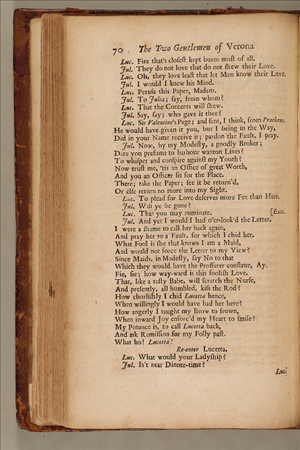 70 The Two Gentlemen of Verona
Luc. Fire that's closest kept burns most of all.
Jul. They do not love that do not shew their Love.
Luc. Oh, they love least that let Men know their Love.
Jul. I would I knew his Mind.
Luc. Peruse this Paper, Madam.
Jul. To Julia; say, from whom?
Luc. That the Contents will shew.
Jul. Say, say; who gave it thee?
Luc. Sir Valentine's Page; and sent, I think, from Protheus.
He would have given it you, but I being in the Way,
Did in your Name receive it; pardon the Fault, I pray.
Jul. Now, by my Modesty, a goodly Broker;
Dare you presume to harbour wanton Lines?
To whisper and conspire against my Youth?
Now trust me, 'tis an Office of great Worth,
And you an Officer fit for the Place.
There; take the Paper; see it be return'd,
Or else return no more into my Sight.
Luc. To plead for Love deserves more Fee than Hate.
Jul. Will ye be gone?
Luc. That you may ruminate. [Exit.
Jul. And yet I would I had o'er-look'd the Letter.
I were a shame to call her back again,
And pray her to a Fault, for which I chid her.
What Fool is she that knows I am a Maid,
And would not force the Letter to my View?
Since Maids, in Modesty, say No to that
Which they would have the Profferer construe, Ay.
Fie, fie; how way-ward is this foolish Love,
That, like a testy Babe, will scratch the Nurse,
And presently, all humbled, kiss the Rod?
How churlishly I chid Lucetta hence,
When willingly I would have had her here?
How angerly I taught my Brow to frown,
When inward Joy enforc'd my Heart to smile?
My Penance is, to call Lucetta back,
And ask Remission for my Folly past.
What ho! Lucetta!
Re-enter Lucetta.
Luc. What would your Ladyship?
Jul. Is't near Dinner-time?
Luc.